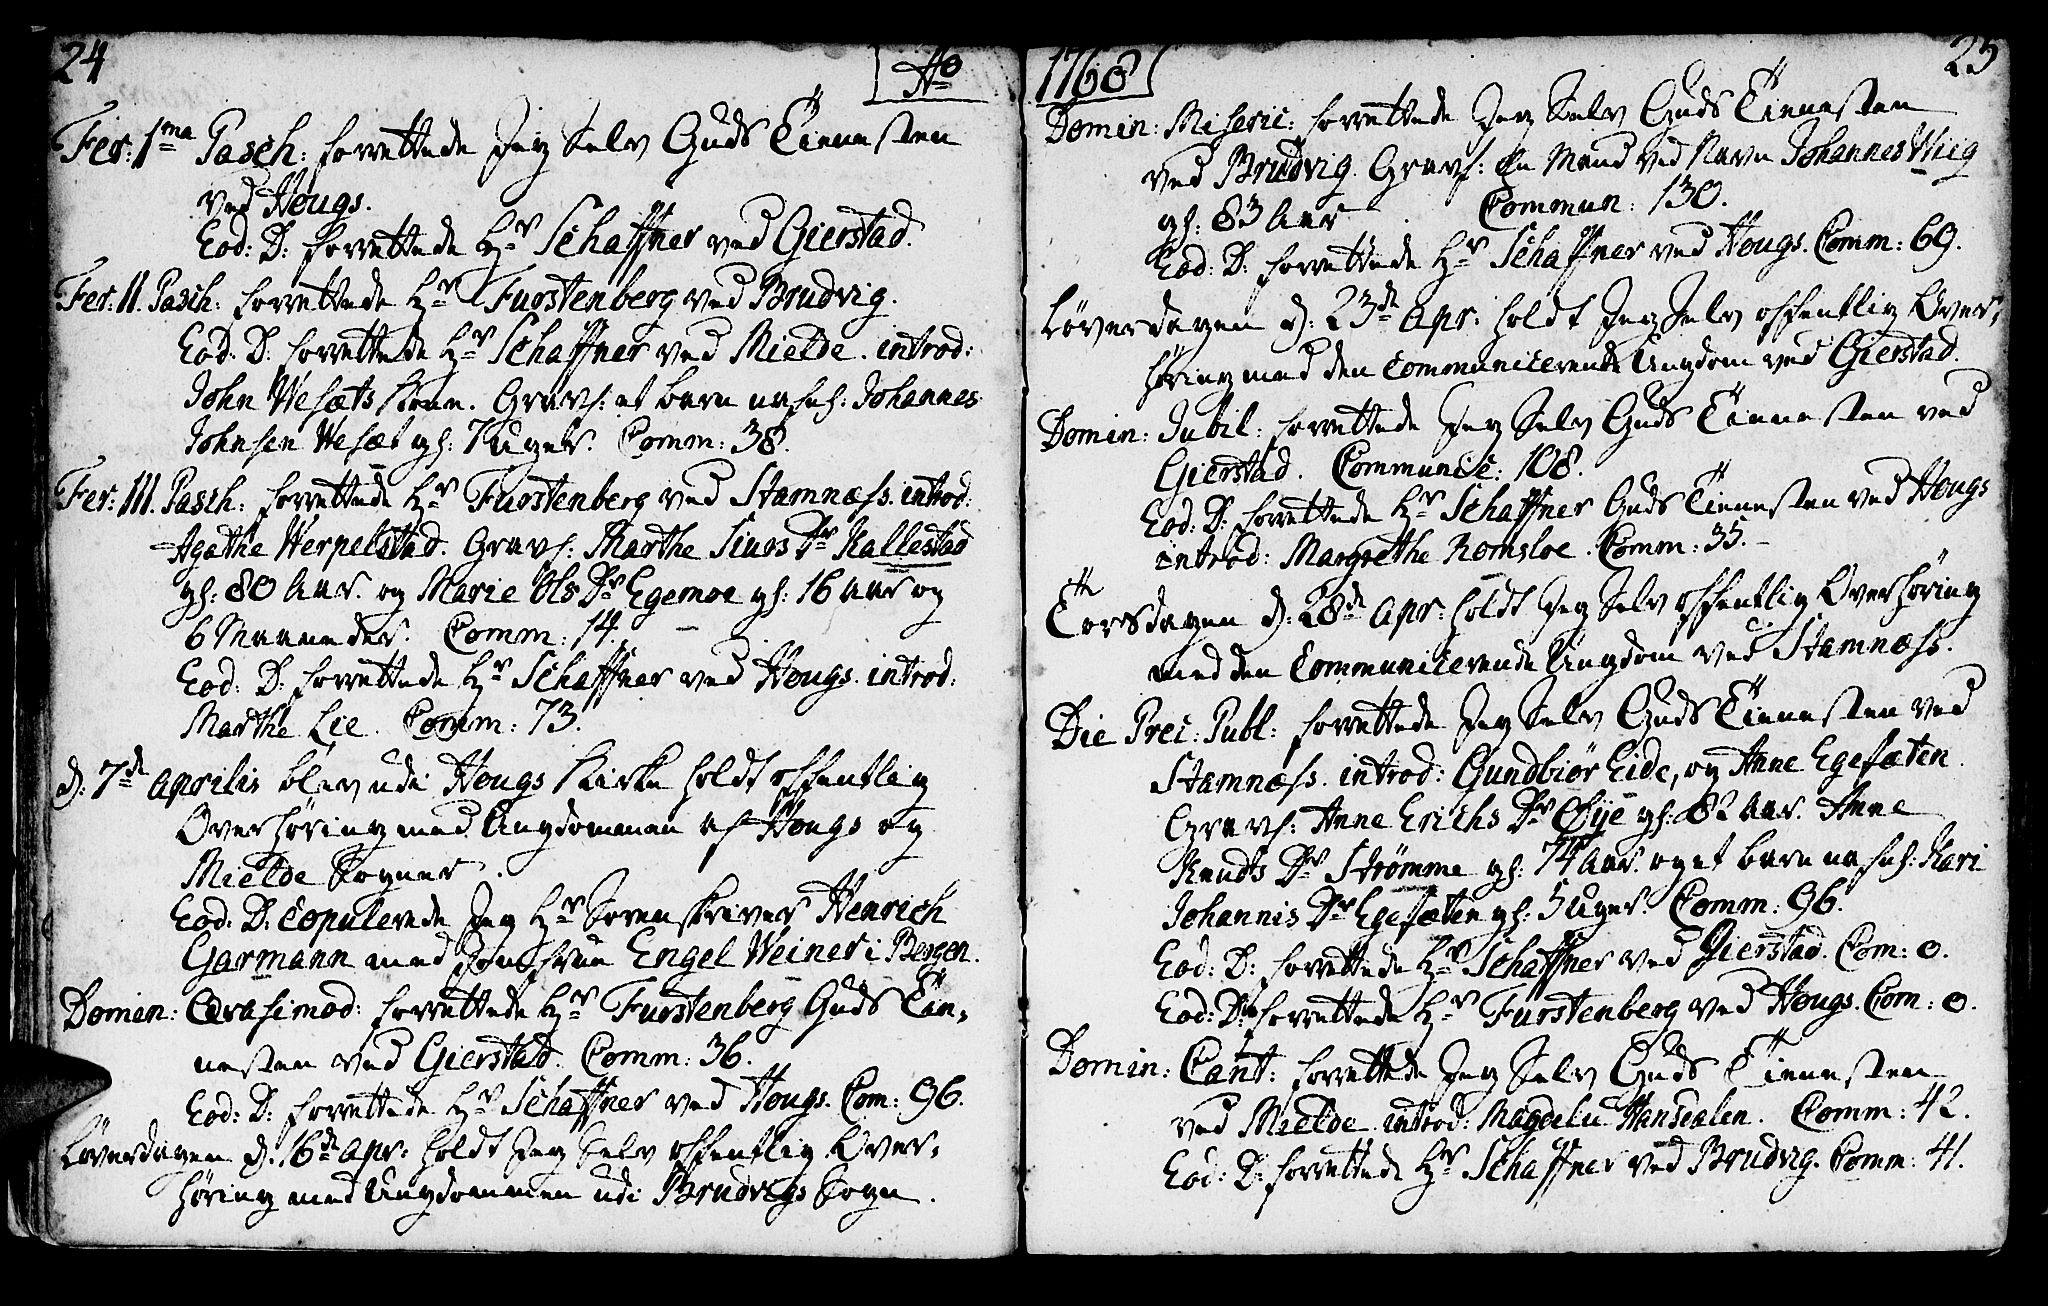 24
Ao
Fer: 1ma Pasch: forrettede Jeg Selv Guds Tienesten
ved Hougs.
Eod: D: forrettede Hr Schaffner ved Gierstad.
Fer: II. Pasch: forrettede Hr Furstenberg ved Brudvig.
Eod: D: forrettede Hr Schaffner ved Mielde. introd:
John Wesæts Kone. Gravf: et barn nafnl: Johannes
Johnsen Wesæt gl: 7 Uger. Comm: 38.
Fer: III. Pasch: forrettede Hr Furstenberg ved Stamnæss. introd:
Agathe Werpelstad. Gravf: Marthe Siurs Dr Kallestad
gl: 80 Aar. og Marie Ols Dr Egemoe gl: 16 aar og
6 Maaneder. Comm: 14.
Eod: D: forrettede Hr Schaffner ved Hougs. introd:
Marthe Lie. Comm: 73.
d: 7de Aprilis blev udi Hougs Kirke holdt offentlig
Overhøring med Ungdommen af Hougs og
Mielde Sogner.
Eod: D: Copulerede Jeg Hr Sorenskriver Henrich
Garmann med Jomfrue Engel Weiner i Bergen.
Domin: Qvasimod: forrettede Hr Furstenberg Guds Tie-
nesten ved Gierstad. Comm: 36.
Eod: D: forrettede Hr Schaffner ved Hougs. Com: 96.
Løverdagen d. 16de Apr: holdt Jeg Selv offentlig Over-
høring med Ungdommen udi Brudvigs Sogn.
1768
25
Domin: Miseric: forrettede Jeg Selv Guds Tienesten
ved Brudvig. Gravf: En Mand ved Navn Johannes Wiig
gl: 83 Aar. Commun: 130.
Eod: D: forrettede Hr Schaffner ved Hougs. Comm: 69.
Løverdagen d: 23de Apr: holdt Jeg Selv offentlig Over-
høring med den Communicerende Ungdom ved Gierstad.
Domin: Jubil: forrettede Jeg Selv Guds Tienesten ved
Gierstad. Communic: 108.
Eod: D: forrettede Hr Schaffner Guds Tienesten ved Hougs
introd: Margrethe Romsloe. Comm: 35.
Torsdagen d: 28de Apr: holdt Jeg Selv offentlig Overhøring
med den Communicerende Ungdom ved Stamnæss.
Die Prec: Publ: forrettede Jeg Selv Guds Tienesten ved
Stamnæss. introd: Gundbiør Eide, og Anne Egesæten.
Gravf: Anne Erichs Dr Øye gl: 82 Aar. Anne
Knuds Dr Strømme gl: 74 Aar. og et barn nafnl: Kari
Johannis Dr Egesæten gl: 5 Uger. Comm: 96.
Eod: D: forrettede Hr Schaffner ved Gierstad. Com: 0.
Eod: D: forrettede Hr Furstenberg ved Hougs. Com: 0.
Domin: Cant: forrettede Jeg Selv Guds Tienesten
ved Mielde introd: Magdelu Hansdalen. Comm: 42.
Eod: D: forrettede Hr Schaffner ved Brudvig. Comm: 41.